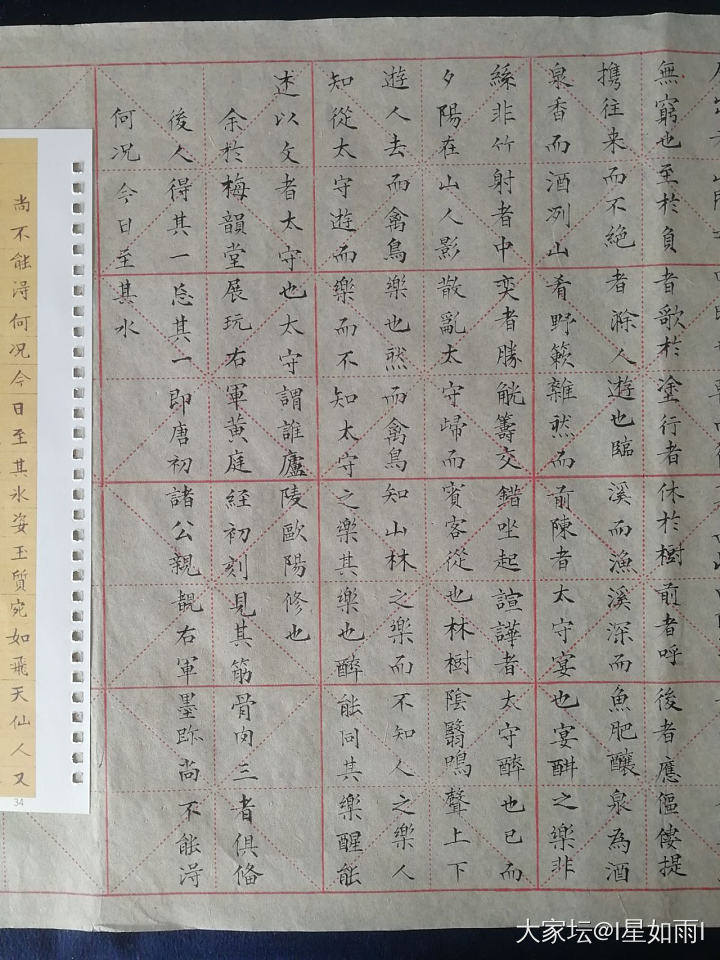 無窮也至於負者歌於塗行者休於樹前者呼後者應傴僂提
携往来而不絶者滁人遊也臨溪而漁溪深而魚肥釀泉為酒
泉香而酒冽山肴野簌雜然而前陳者太守宴也宴酣之樂非
絲非竹射者中奕者勝觥籌交錯坐起諠譁者太守醉也已而
夕陽在山人影散亂太守歸而賓客從也林樹陰翳鳴聲上下
遊人去而禽鳥樂也然而禽鳥知山林之樂而不知人之樂人
知從太守遊而樂而不知太守之樂其樂也醉能同其樂醒能
述以文者太守也太守謂誰廬陵歐陽修也
余於梅韻堂展玩右軍黄庭經初刻見其筋骨肉三者俱俻
後人得其一忘其一即唐初諸公親覩右軍墨跡尚不能得
何况今日至其氷
尚不能得何况今日至其氷姿玉質宛如飛天仙人又
34
大家坛@I星如雨I